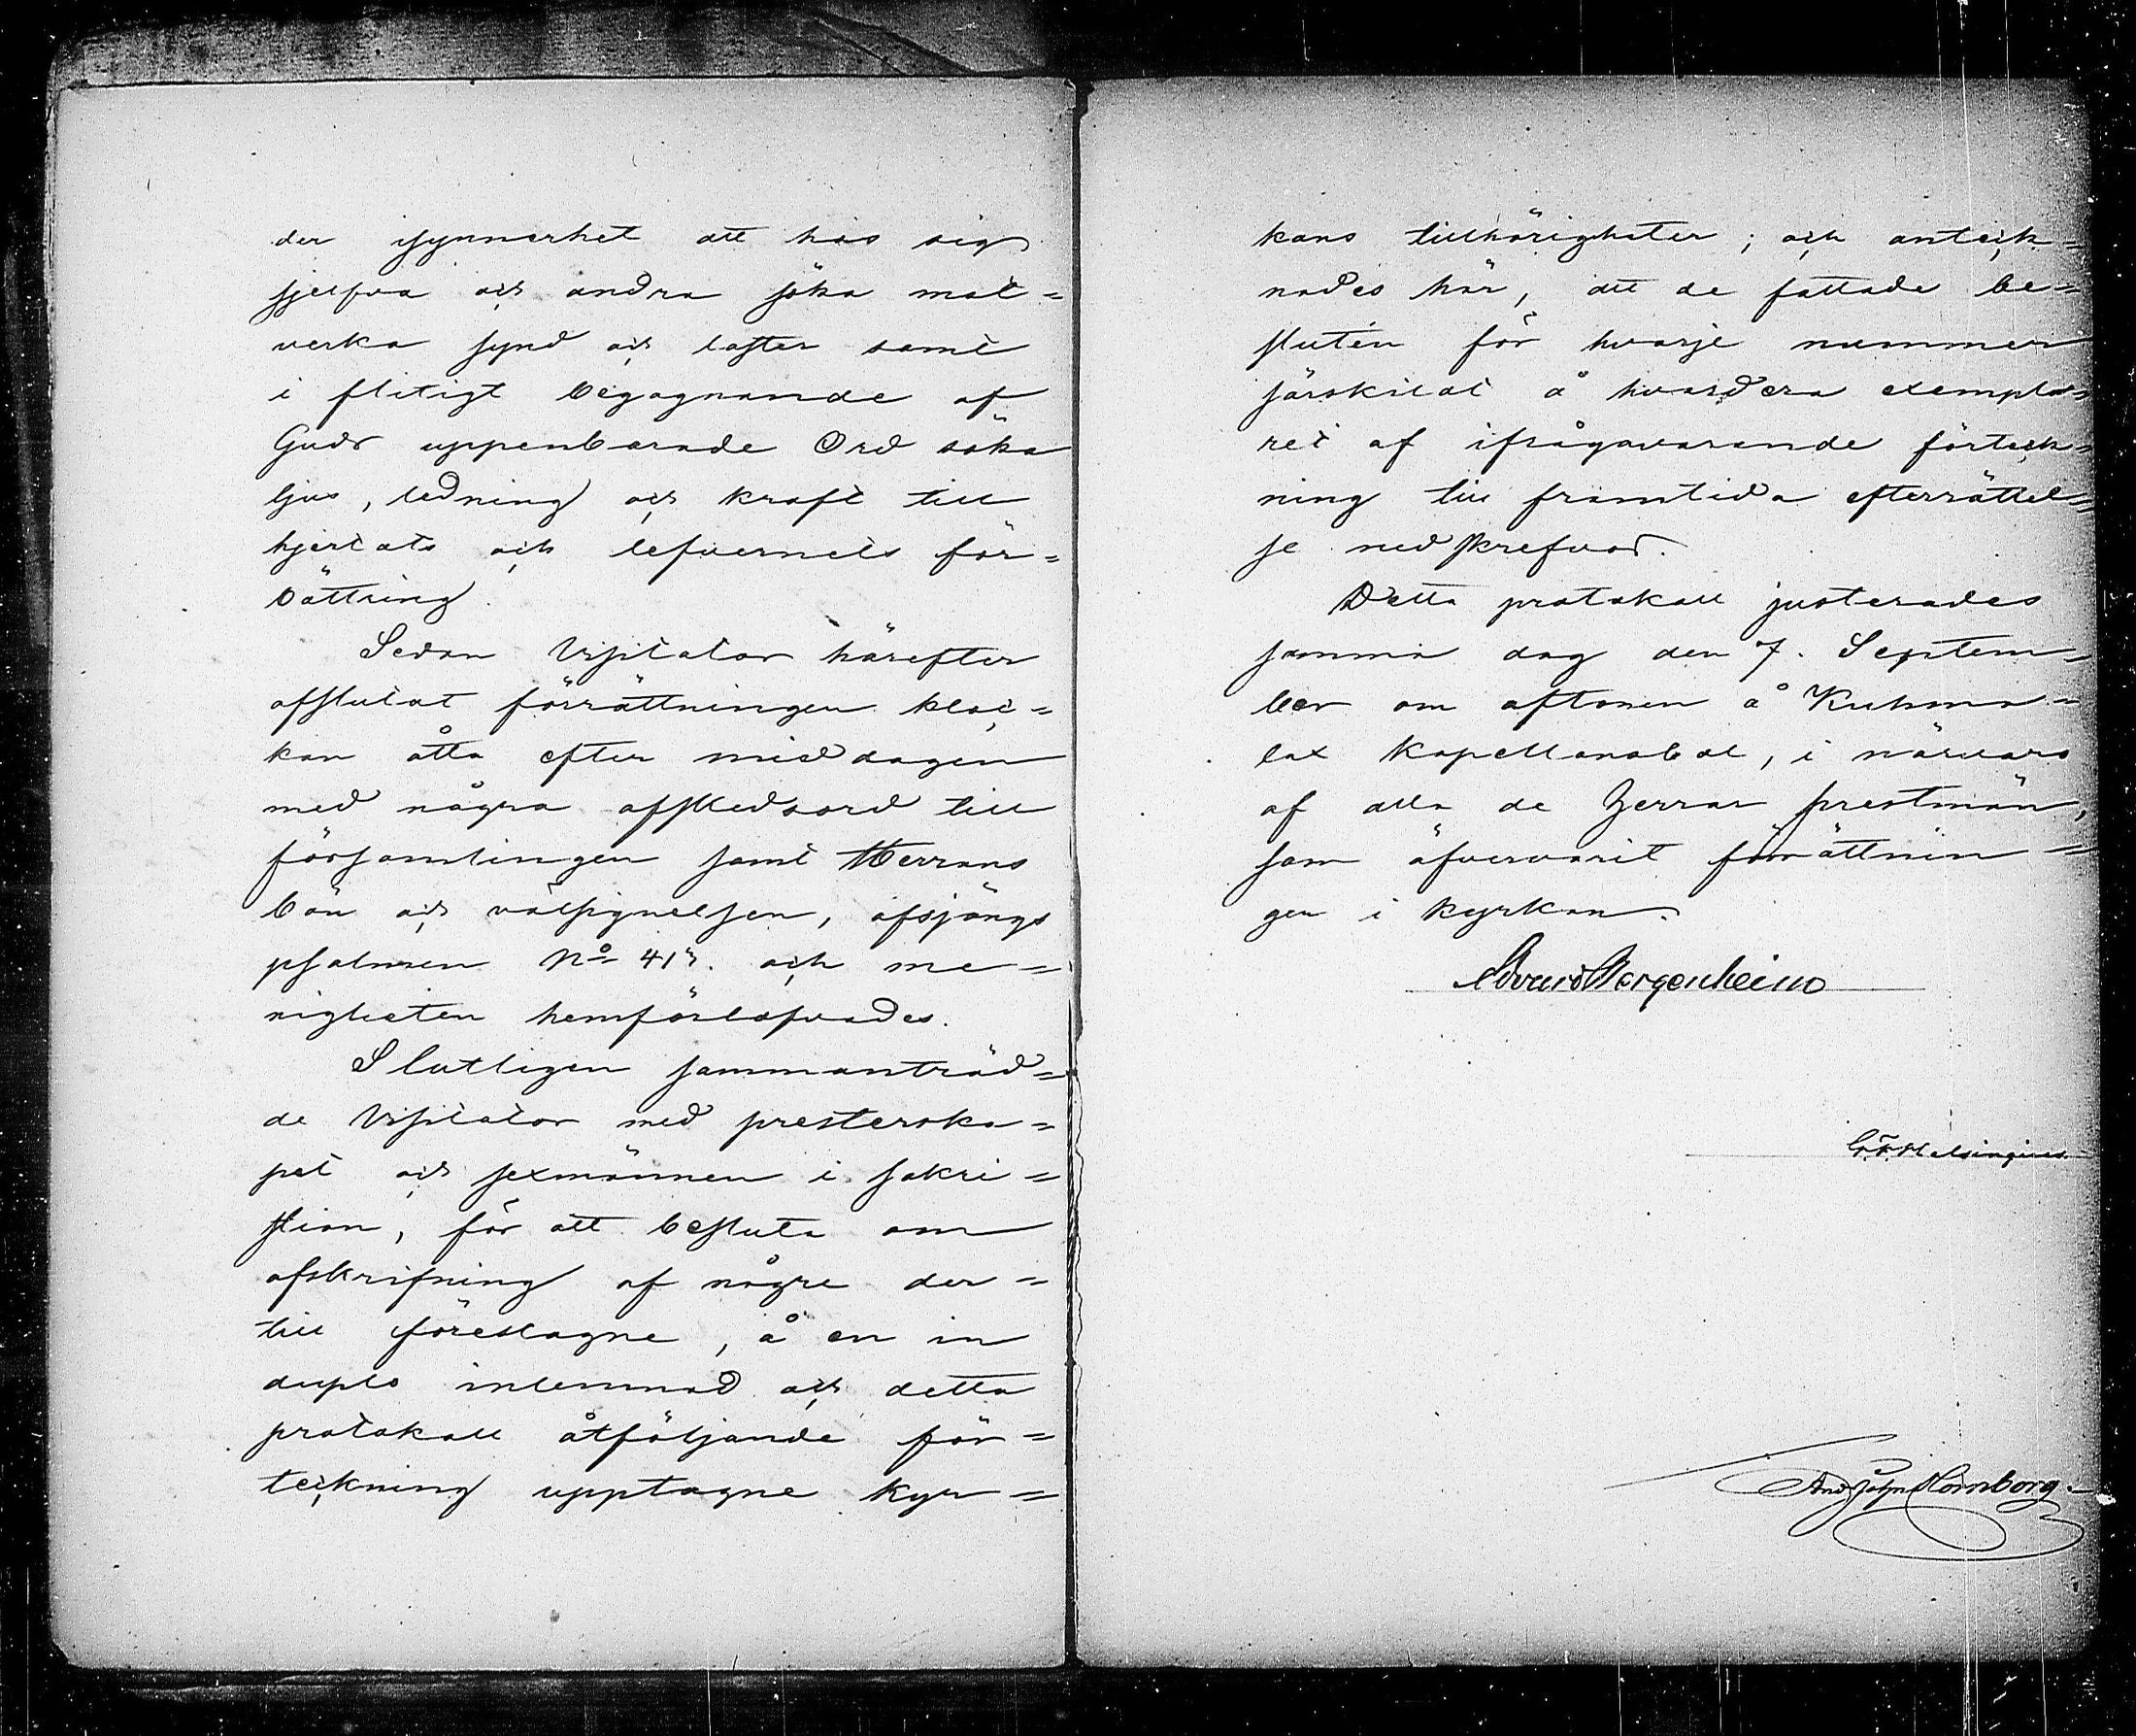 der isynnerhet att hos sig
sjelfva och andra söka mot=
verka synd och laster samt
i flitigt begagnande af
Guds uppenbarade Ord söka
ljus, ledning och kraft till
hjertats och lefvernets för=
bättring.
Sedan Visitator härefter
afslutat förrättningen kloc=
kan åtta efter middagen
med några afskedsord till
församlingen samt Herrans
bön och välsignelsen, afsjöngs
psalmen No 413. och me=
nigheten hemförlofvades.
Slutligen sammanträd=
de Visitator med presterska=
pet och sexmännen i sakri=
stian, för att besluta om
afskrifning af några der=
till föreslagne, å en in
duplo inlemnad och detta
protokoll åtföljande för=
teckning upptagne kyr=
kans tillhörigheter; och anteck=
nades här, att de fattade be=
sluten för hvarje nummer
särskildt å hvardera exempla=
ret af ifrågavarande förteck=
ning till framtida efterrättel=
se nedskrefvos.
Detta protokoll justerades
samma dag den 7. Septem=
ber om aftonen å Kuhma=
lax Kapellansbol, i närvaro
af alla de Herrar prestmän,
som öfvervarit förrättnin=
gen i kyrkan.
Edvard Bergenheim
G. F. Helsingius.
And. Joh. Hornborg.